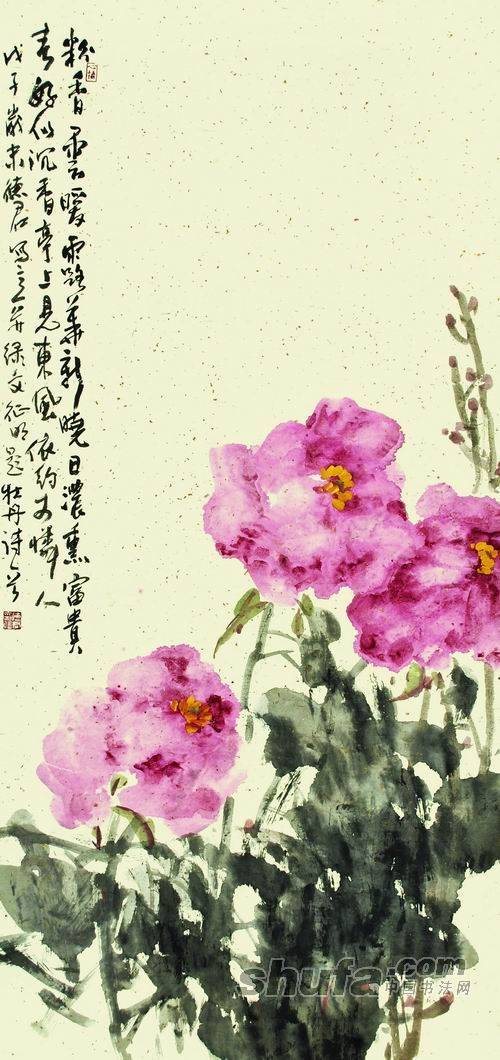 粉香雲暖露華新曉日濃熏富貴
春好似沉香亭上見東風依約可憐人
戊子歲末德君写之并録文征明題牡丹詩一首
shufa.com
中国书法网